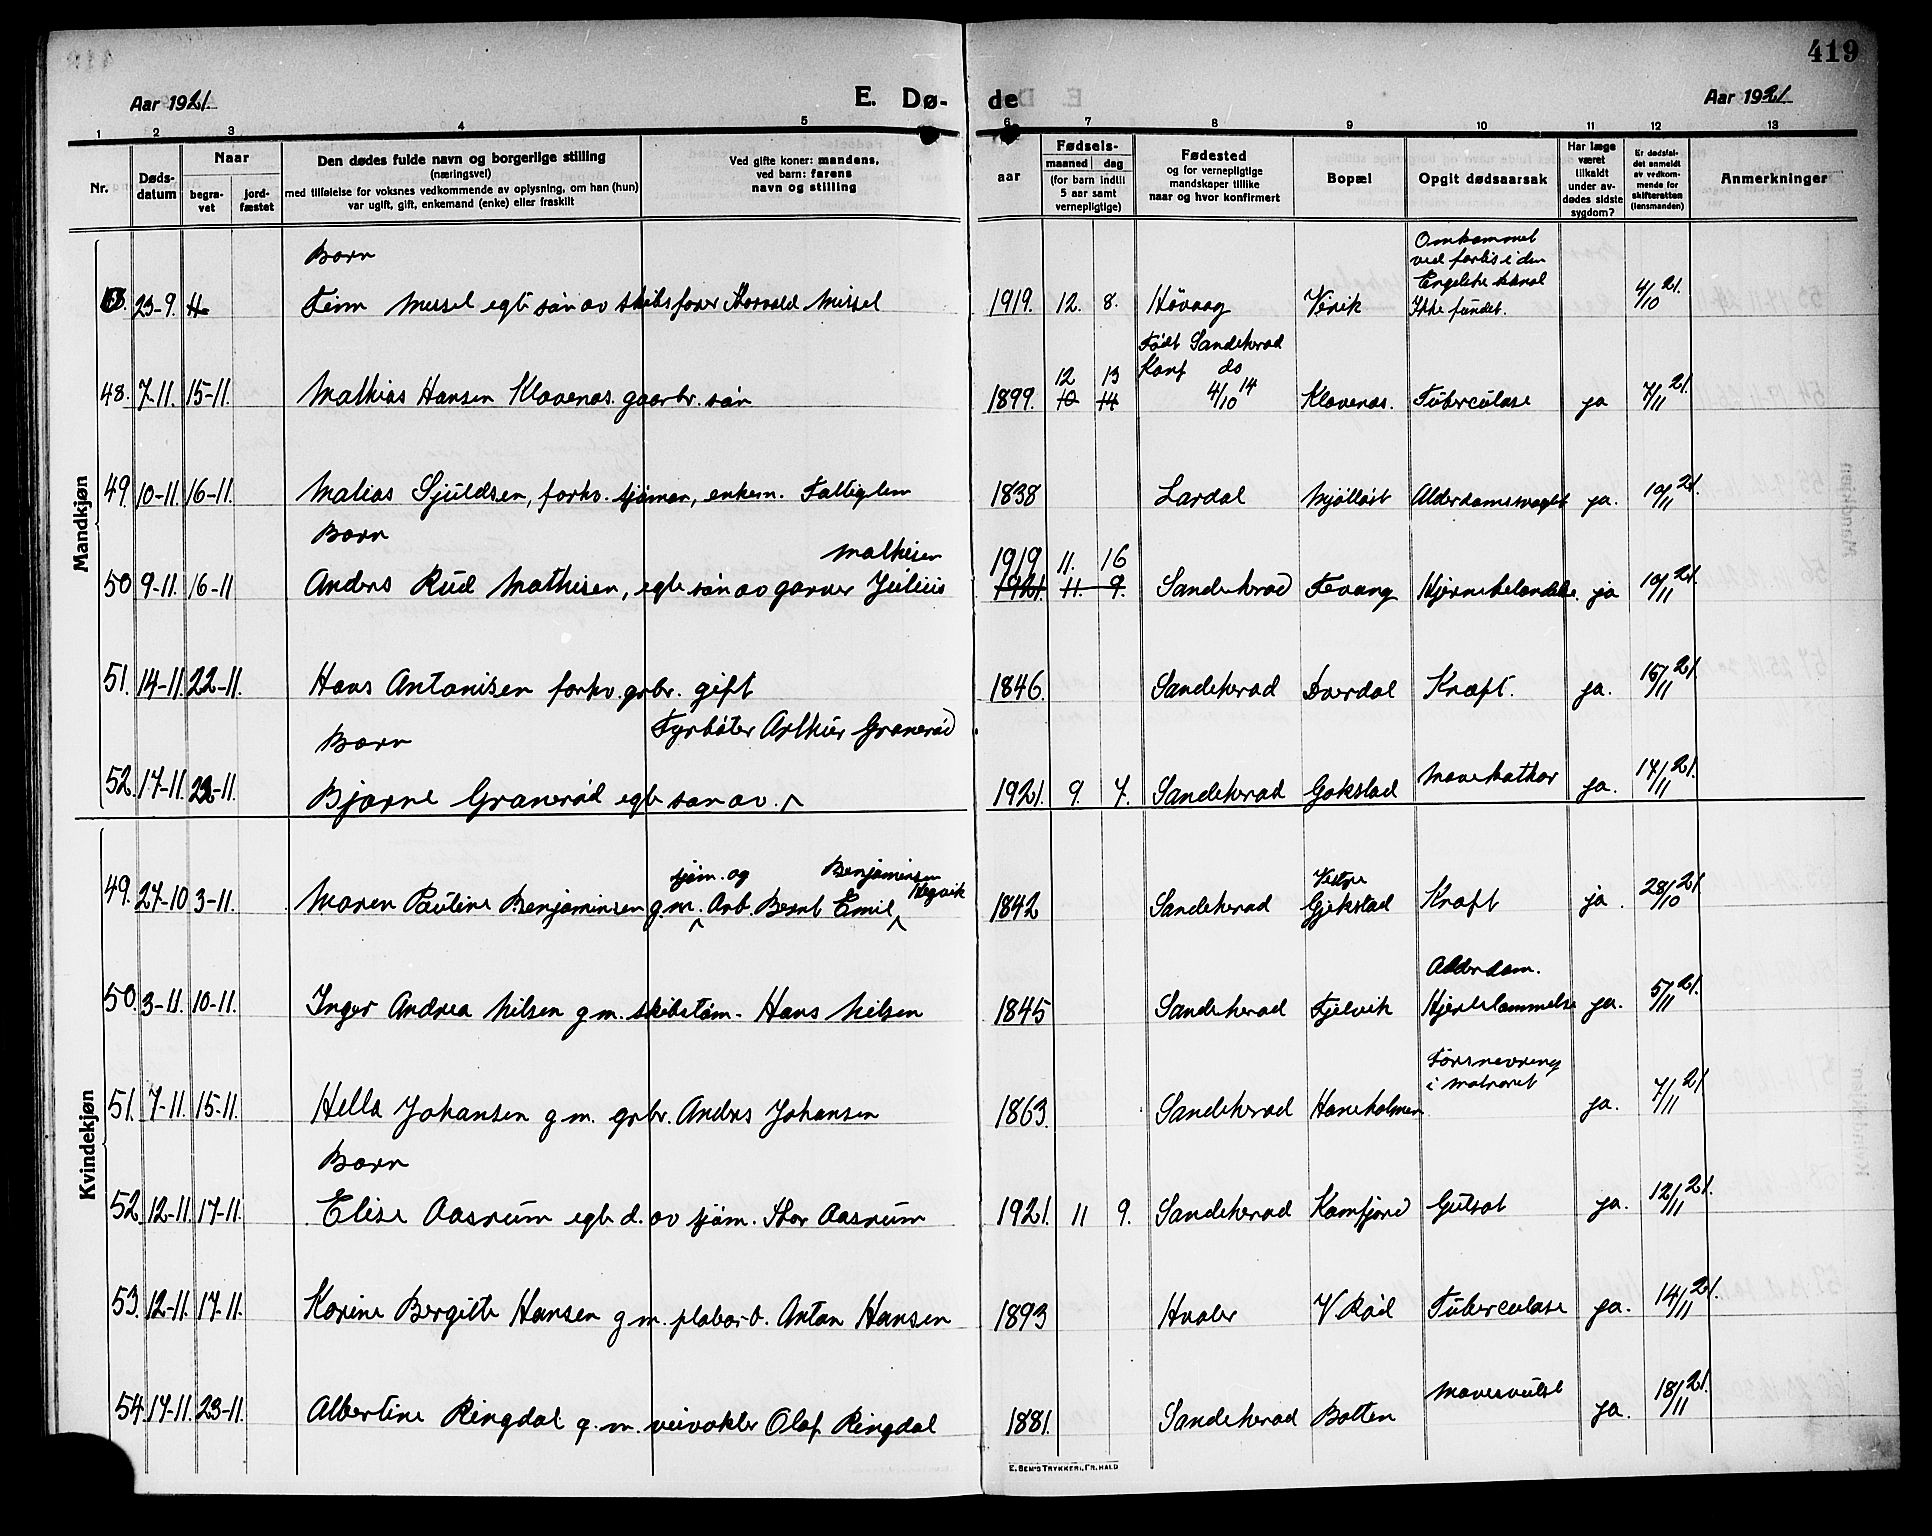 419
Aar 1921.
E. Dø- de
Aar 1921
1 2 3 4 5 6 7 8 9 10 11 12 13
Nr.
Døds-
datum
Naar
begra-
vet
jord-
fæstet
Den dødes fulde navn og borgerlige stilling
(næringsvei)
med tilføielse for voksnes vedkommende av oplysning, om han (hun)
var ugift, gift, enkemand (enke) eller fraskilt
Ved gifte koner: mandens,
ved barn: farens
navn og stilling
aar
Fødsels-
maaned dag
(for barn indtil
5 aar samt
vernepligtige)
Fødested
og for vernepligtige
mandskaper tillike
naar og hvor konfirmert
Bopæl
Opgit dødsaarsak
Har læge
været
tilkaldt
under av-
dødes sidste
sygdom?
Er dødsfal-
det anmeldt
av vedkom-
mende for
skifteretten
(lensmanden)
Anmerkninger
Mandkjøn
Barn
Omkommet
ved forlis i den
Engelske kanal
23-9. Finn Missel egte søn av skibsfører Thorvald Missel 1919. 12. 8. Høvaag Virik Ikke fundet. 4/10 21.
Født Sandeherad
12 13 Konf do
48. 7-11. 15-11. Mathias Hansen Klavenæs. gaarbr. søn 1899. 10 14 4/10 14 Klavenæs. Tuberculose ja 7/11 21.
49. 10-11. 16-11. Matias Sjuldsen, forhv. sjøman, enkem. Fattiglem 1838 Lardal Mjølløst Alderdomssvaghet ja. 10/11 21.
Barn
Mathisen
1919 11. 16
50 9-11. 16-11 Anders Rud Mathisen, egte søn av garver Julius 1921. 11. 9. Sandeherad Fevang Hjernebetændelse. ja 10/11 21.
51. 14-11. 22-11. Hans Antonisen forhv. grbr. gift 1846. Sandeherad Dverdal Kræft. ja. 15/11 21.
Barn
Fyrbøter Arthur Granerød
52. 17-11. 22-11. Bjarne Granerød egte søn av. 1921. 9. 7. Sandeherad Gokstad Mavekathar ja. 17/11 21.
Kvindekjøn
sjøm. og Benjaminsen
Hegvik
Vestre
49. 27-10 3-11. Maren Pauline Benjaminsen g.m. Arb. Bernt Emil 1842 Sandeherad Gjekstad Kræft ja. 28/10 21
Alderdom.
50. 3-11. 10-11. Inger Andrea Nilsen g m. skibstøm. Hans Nilsen 1845 Sandeherad Fjelvik Hjertelammelse ja. 5/11 21.
Forsnevring
i matrøret
51. 7-11. 15-11. Hella Johansen g m. grbr. Anders Johansen 1863. Sandeherad Haneholmen ja. 7/11 21
Barn
52. 12-11. 17-11. Elise Aasrum egte d. av sjøm. Thor Aasrum 1921. 11 9. Sandeherad Kamfjord Gulsot ja. 12/11 21.
53. 12-11. 17-11. Karine Bergitte Hansen g m. pladsarb. Anton Hansen 1893 Hvaler V Rød Tuberculose ja. 14/11 21.
54. 17-11. 23-11. Albertine Ringdal g. m. veivokter Olaf Ringdal 1881. Sandeherad Botten Mavesvulst ja. 18/11 21.
E. SEM'S TRYKKERI, FR.HALD